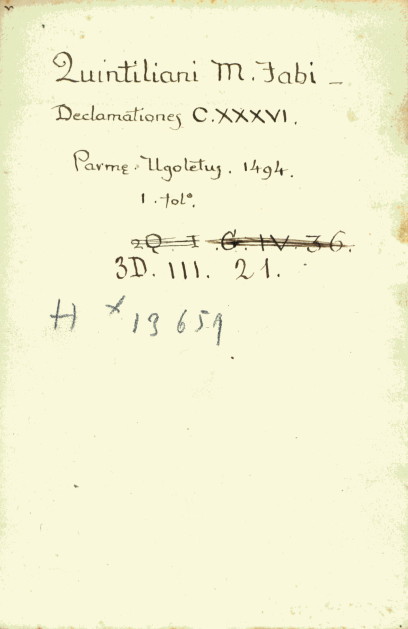 Quintiliani M. Fabi –
Declamationes C.XXXVI.
Parme. Ugoletus. 1494.
1. fol°.
2Q. I. G. IV. 36.
3D. III. 21.
H *13659